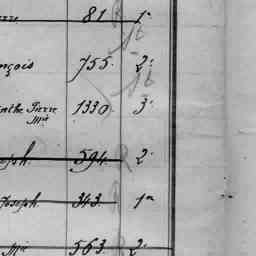 81 1ª
nçois 755. 2.
inthe Pierre 1330. 3.
Mie
seph. 594. 2.
Joseph. 343. 1ª
Mie 563. 2.